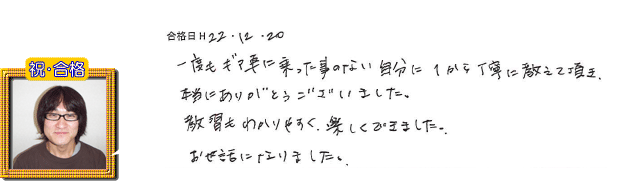 祝・合格
合格日 H 22・12・20
一度もギア車に乗った事のない自分に1から丁寧に教えて頂き、
本当にありがとうございました。
教習もわかりやすく、楽しくできました。
お世話になりました。